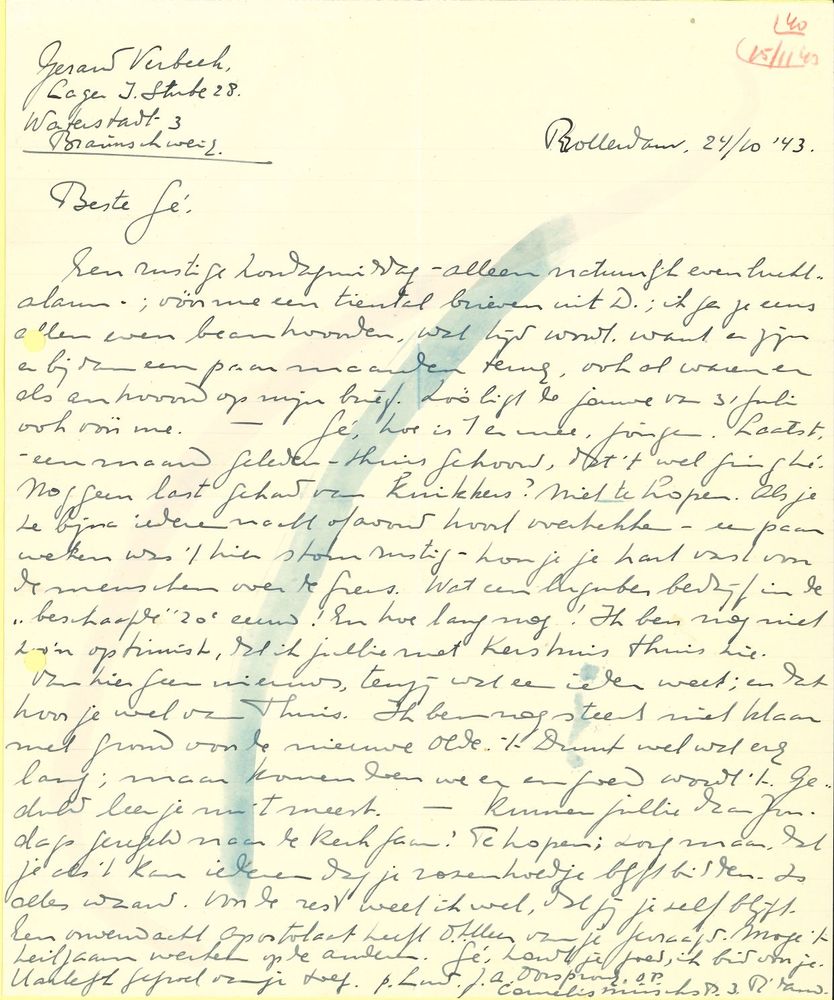 40
15/11 43
Gerard Verbeek,
Lager I. Stube 28.
Watenstadt 3
Braunschweig.
Rotterdam, 24/10 '43.
Beste Gé,
Een rustige Zondagmiddag - alleen natuurlijk even lucht-
alarm - ; vóór me een tiental brieven uit D.; ik ga je eens
allen even beantwoorden, wat tijd wordt. want er zijn
er bij van een paar maanden terug, ook al waren er
als antwoord op mijn brief. Zóó ligt de jouwe van 3, Juli
ook vóór me. — Gé, hoe is 't er mee, jongen. Laatst,
- een maand geleden - thuis gehoord, dat 't wel ging hé.
Nog geen last gehad van Knikkers? Niet te hopen. Als je
ze bijna iederen nacht of avond hoort overtrekken - een paar
weken was 't hier stom rustig - hou je je hart vast voor
de menschen over de grens. Wat een luguber bedrijf in de
"beschaafde" 20e eeuw! En hoe lang nog! Ik ben nog niet
zoo'n optimist, dat ik jullie met Kerstmis thuis zie.
Van hier geen nieuws, tenzij wat een ieder weet; en dat
hoor je wel van Thuis. Ik ben nog steeds niet klaar
met grond voor de nieuwe Olde. 't Duurt wel wat erg
lang; maar komen doen we er en goed wordt 't. Ge-
duld leer je nu 't meest. — Kunnen jullie daar Zon-
dags geregeld naar de Kerk gaan? Te hopen; zorg maar, dat
je als 't kan iederen dag je rozenhoedje blijft bidden. Is
alles waard. Voor de rest weet ik wel, dat jij je zelf blijft.
Een onverwacht apostolaat heeft O.Heer van je gevraagd. Moge 't
heilzaam werken op de anderen. Gé, houd je goed, ik bid voor je.
Hartelijk gegroet van je toeg. p. Lud. J. A. Oorsprong, o.p.
Cornelis Musschstr. 3. R'dam.